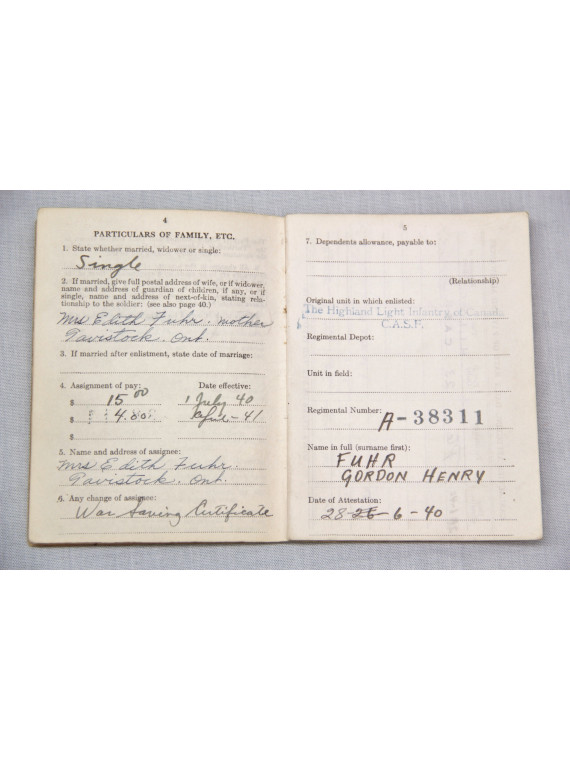 4
PARTICULARS OF FAMILY, ETC.
1. State whether married, widower or single:
Single
2. If married, give full postal address of wife, or if widower,
name and address of guardian of children, if any, or if
single, name and address of next-of-kin, stating rela-
tionship to the soldier: (see also page 40.)
Mrs Edith Fuhr. mother
Tavistock. Ont.
3. If married after enlistment, state date of marriage:
4. Assignment of pay: Date effective:
$ 15 00 1 July 40
$ 4.00 April - 41
$
5. Name and address of assignee:
Mrs Edith Fuhr.
Tavistock. Ont.
6. Any change of assignee:
War Saving Certificate
5
7. Dependents allowance, payable to:
(Relationship)
Original unit in which enlisted:
The Highland Light Infantry of Canada,
C.A.S.F.
Regimental Depot:
Unit in field:
Regimental Number: A-38311
Name in full (surname first):
FUHR
GORDON HENRY
Date of Attestation:
28-6-40